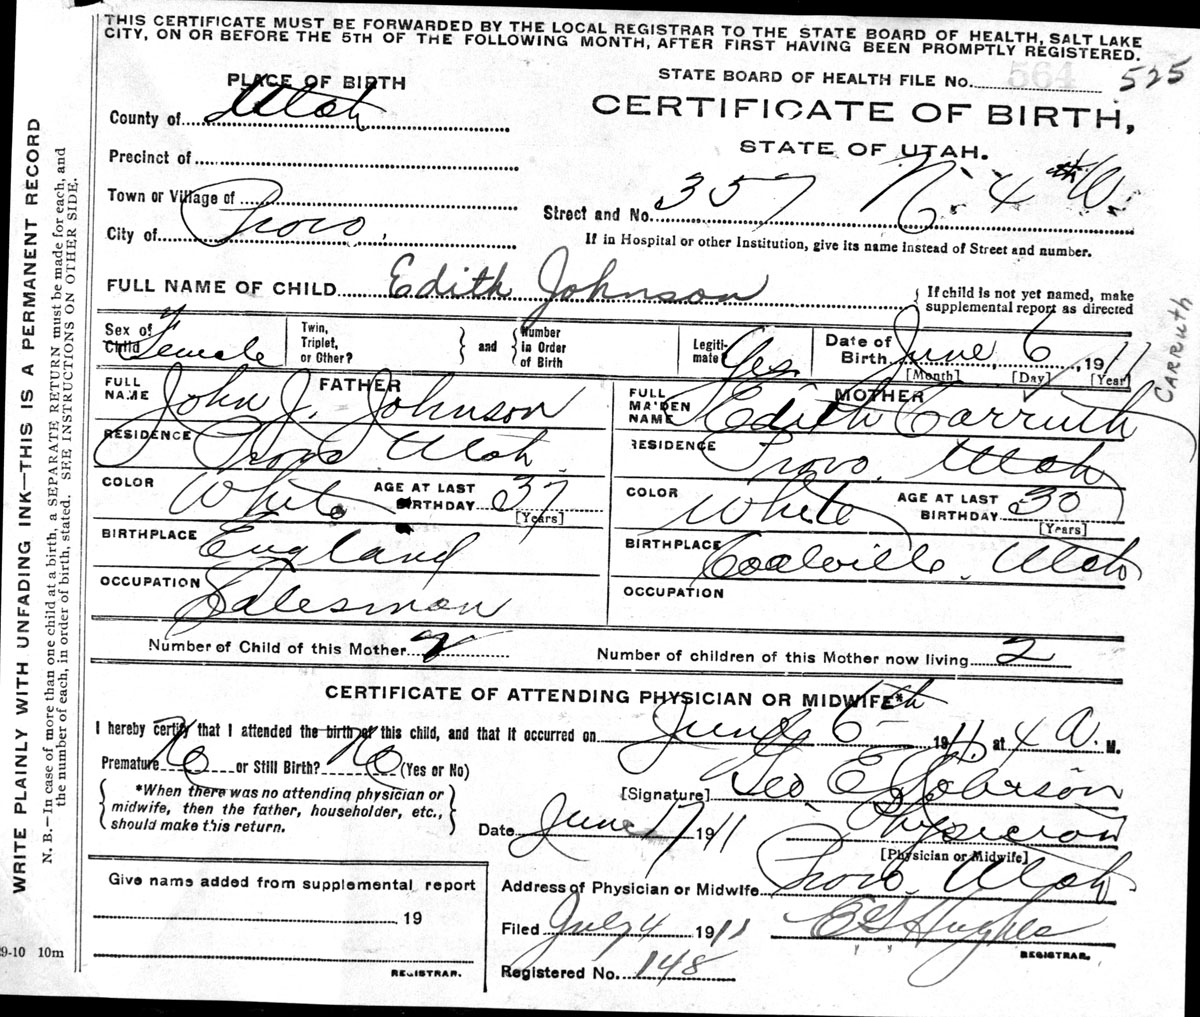 THIS CERTIFICATE MUST BE FORWARDED BY THE LOCAL REGISTRAR TO THE STATE BOARD OF HEALTH, SALT LAKE
CITY, ON OR BEFORE THE 5TH OF THE FOLLOWING MONTH, AFTER FIRST HAVING BEEN PROMPTLY REGISTERED.
PLACE OF BIRTH
STATE BOARD OF HEALTH FILE No. 564 525
County of Utah
CERTIFICATE OF BIRTH,
STATE OF UTAH.
Precinct of
Town or Village of
Street and No. 357 N. 4th W.
City of Provo.
If in Hospital or other Institution, give its name instead of Street and number.
FULL NAME OF CHILD Edith Johnson
{ If child is not yet named, make
supplemental report as directed
Sex of Child Female
Twin, Triplet, or Other?
} and {
Number in Order of Birth
Legiti- mate? Yes
Date of Birth June 6, 1911
[Month] [Day] [Year]
FATHER
FULL NAME John J. Johnson
RESIDENCE Provo Utah.
COLOR White AGE AT LAST BIRTHDAY 37
[Years]
BIRTHPLACE England
OCCUPATION Salesman
MOTHER
FULL MAIDEN NAME Edith Carruth
RESIDENCE Provo. Utah
COLOR White AGE AT LAST BIRTHDAY 30
[Years]
BIRTHPLACE Coalville. Utah
OCCUPATION
Number of Child of this Mother 2
Number of children of this Mother now living 2
CERTIFICATE OF ATTENDING PHYSICIAN OR MIDWIFE*
I hereby certify that I attended the birth of this child, and that it occurred on June 6th 1911. at 4 A. M.
Premature No or Still Birth? No (Yes or No)
{ *When there was no attending physician or
midwife, then the father, householder, etc.,
should make this return. }
[Signature] Geo E Robison
Physician
[Physician or Midwife]
Date June 17 1911
Address of Physician or Midwife Provo. Utah
Give name added from supplemental report
19
REGISTRAR.
Filed July 4 1911 E S Hughes
REGISTRAR.
Registered No. 148
9-10 10m
WRITE PLAINLY WITH UNFADING INK—THIS IS A PERMANENT RECORD
N. B.—In case of more than one child at a birth, a SEPARATE RETURN must be made for each, and
the number of each, in order of birth, stated. SEE INSTRUCTIONS ON OTHER SIDE.
CARRUTH